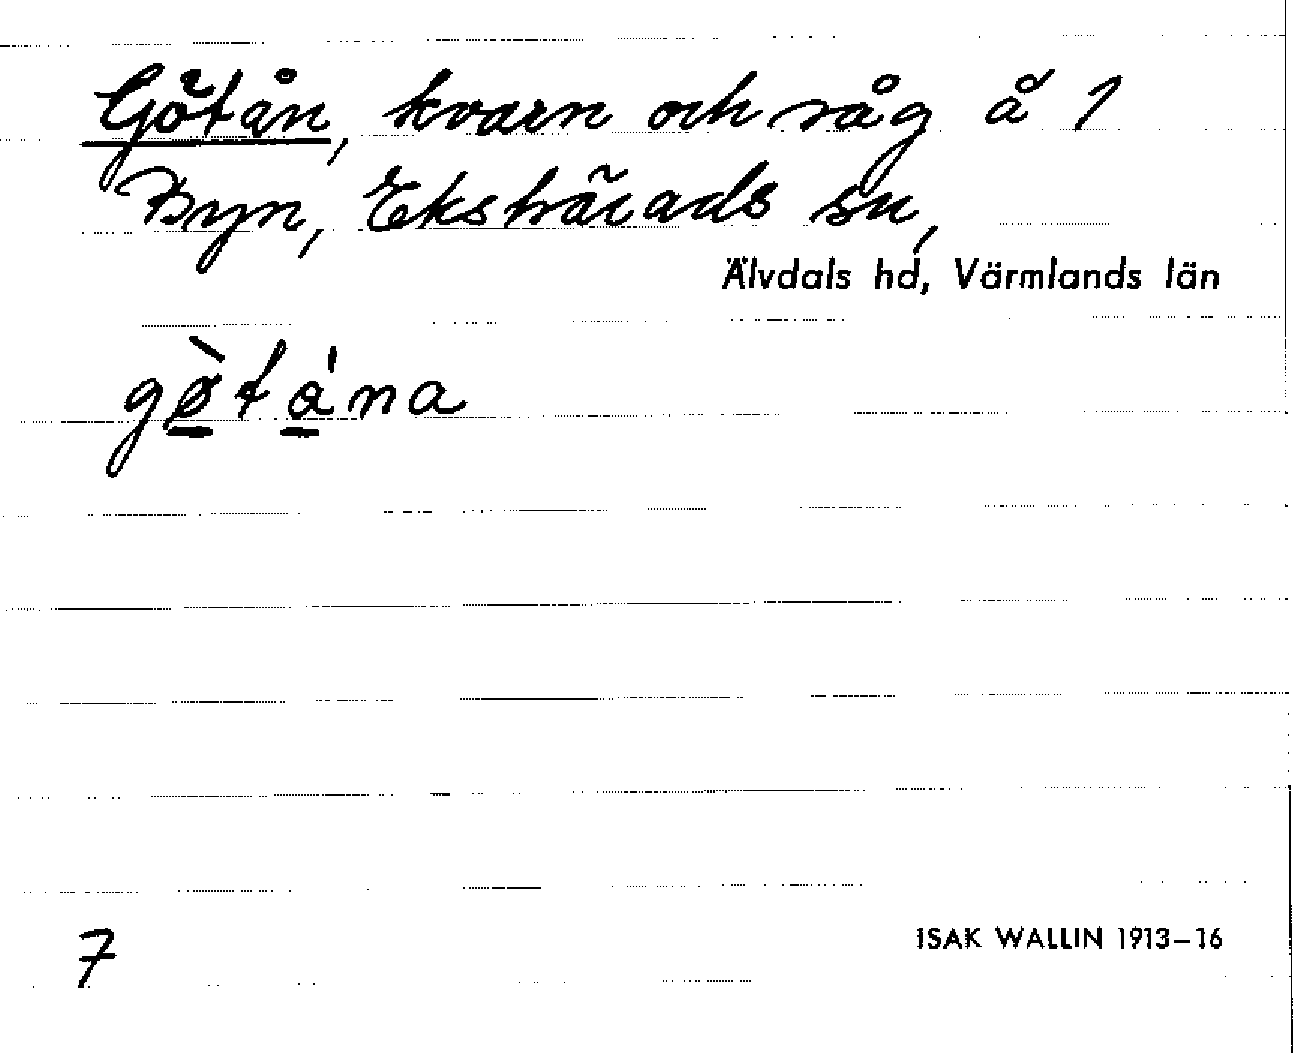 Götån, kvarn och såg å 1
Byn, Ekshärads sn,
Älvdals hd, Värmlands län
gø̀tána
7
ISAK WALLIN 1913–16